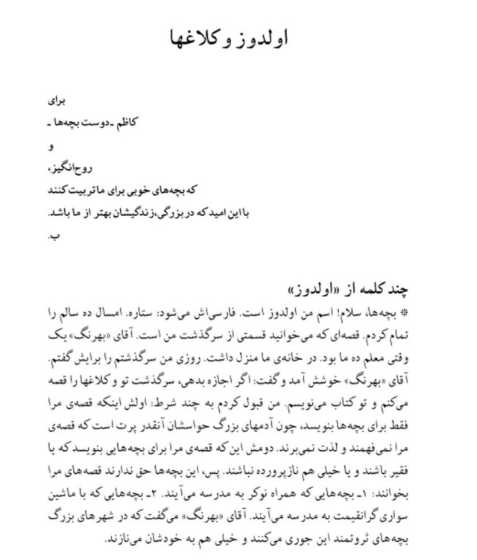 اولدوز و کلاغها
برای
کاظم ـ دوست بچه‌ها ـ
و
روح‌انگیز،
که بچه‌های خوبی برای ما تربیت کنند
با این امید که در بزرگی، زندگیشان بهتر از ما باشد.
ب.
چند کلمه از «اولدوز»
* بچه‌ها، سلام! اسم من اولدوز است. فارسی‌اش می‌شود: ستاره. امسال ده سالم را
تمام کردم. قصه‌ای که می‌خوانید قسمتی از سرگذشت من است. آقای «بهرنگ» یک
وقتی معلم ده ما بود. در خانه‌ی ما منزل داشت. روزی من سرگذشتم را برایش گفتم.
آقای «بهرنگ» خوشش آمد و گفت: اگر اجازه بدهی، سرگذشت تو و کلاغها را قصه
می‌کنم و تو کتاب می‌نویسم. من قبول کردم به چند شرط: اولش اینکه قصه‌ی مرا
فقط برای بچه‌ها بنویسد، چون آدمهای بزرگ حواسشان آنقدر پرت است که قصه‌ی
مرا نمی‌فهمند و لذت نمی‌برند. دومش این که قصه‌ی مرا برای بچه‌هایی بنویسد که یا
فقیر باشند و یا خیلی هم نازپرورده نباشند. پس، این بچه‌ها حق ندارند قصه‌های مرا
بخوانند: ۱ـ بچه‌هایی که همراه نوکر به مدرسه می‌آیند. ۲ـ بچه‌هایی که با ماشین
سواری گرانقیمت به مدرسه می‌آیند. آقای «بهرنگ» می‌گفت که در شهرهای بزرگ
بچه‌های ثروتمند این جوری می‌کنند و خیلی هم به خودشان می‌نازند.